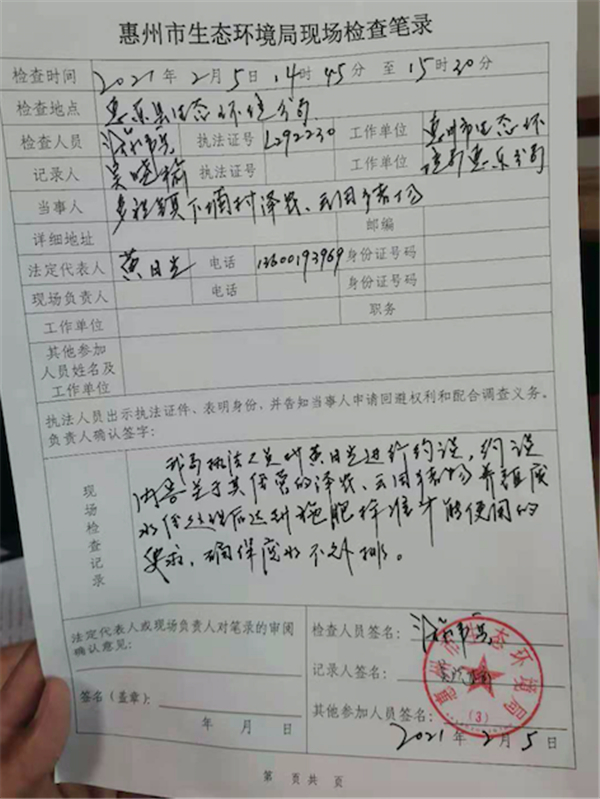 惠州市生态环境局现场检查笔录
检查时间 2021年2月5日14时45分至15时30分
检查地点 惠东县生态环境分局
检查人员 执法证号 L292230 工作单位 惠州市生态环
记录人 吴晓榆 执法证号 工作单位 境局惠东分局
当事人 多祝镇下埔村泽农、云田猪场
详细地址 邮编
法定代表人 黄日光 电话 13600193969 身份证号码
现场负责人 电话 身份证号码
工作单位 职务
其他参加
人员姓名及
工作单位
执法人员出示执法证件、表明身份,并告知当事人申请回避权利和配合调查义务。
负责人确认签字:
现场检查记录
我局执法人员对黄日光进行约谈,约谈
内容关于其经营的泽农、云田猪场养殖废
水经处理后达到施肥标准才能使用的
要求,确保废水不外排。
法定代表人或现场负责人对笔录的审阅
确认意见:
签名(盖章):
年 月 日
检查人员签名:
记录人签名:
其他参加人员签名:
2021年2月5日
惠州市生态环境局
(3)
第 页共 页